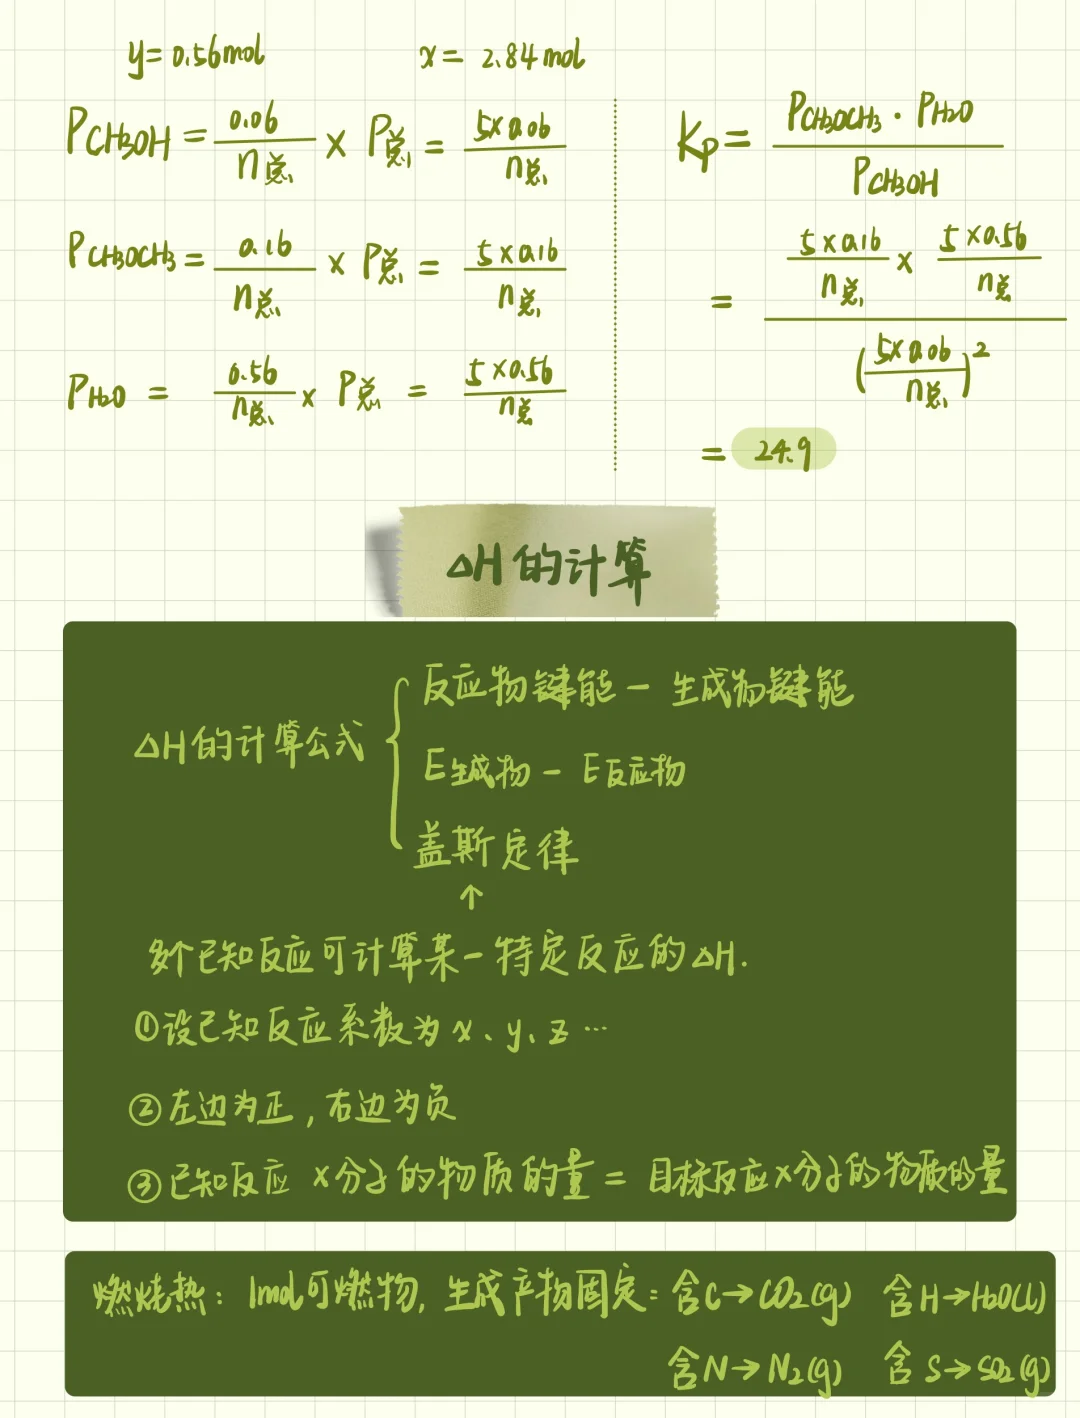 y=0.56mol x=2.84mol
P CH3OH = 0.06/n总 × P总 = 5×0.06/n总
P CH3OCH3 = 0.16/n总 × P总 = 5×0.16/n总
P H2O = 0.56/n总 × P总 = 5×0.56/n总
Kp = P CH3OCH3 · P H2O / P CH3OH
= 5×0.16/n总 × 5×0.56/n总 / (5×0.06/n总)²
= 24.9
△H的计算
△H的计算公式
反应物键能 - 生成物键能
E生成物 - E反应物
盖斯定律
↑
多个已知反应可计算某一特定反应的△H.
①设已知反应系数为x、y、z…
②左边为正,右边为负
③已知反应×分子的物质的量=目标反应×分子的物质的量
燃烧热:1mol可燃物,生成产物固定:含C→CO2(g) 含H→H2O(l)
含N→N2(g) 含S→SO2(g)